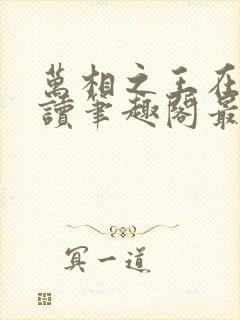 萬相之王在
讀筆趣閣最
冥一道